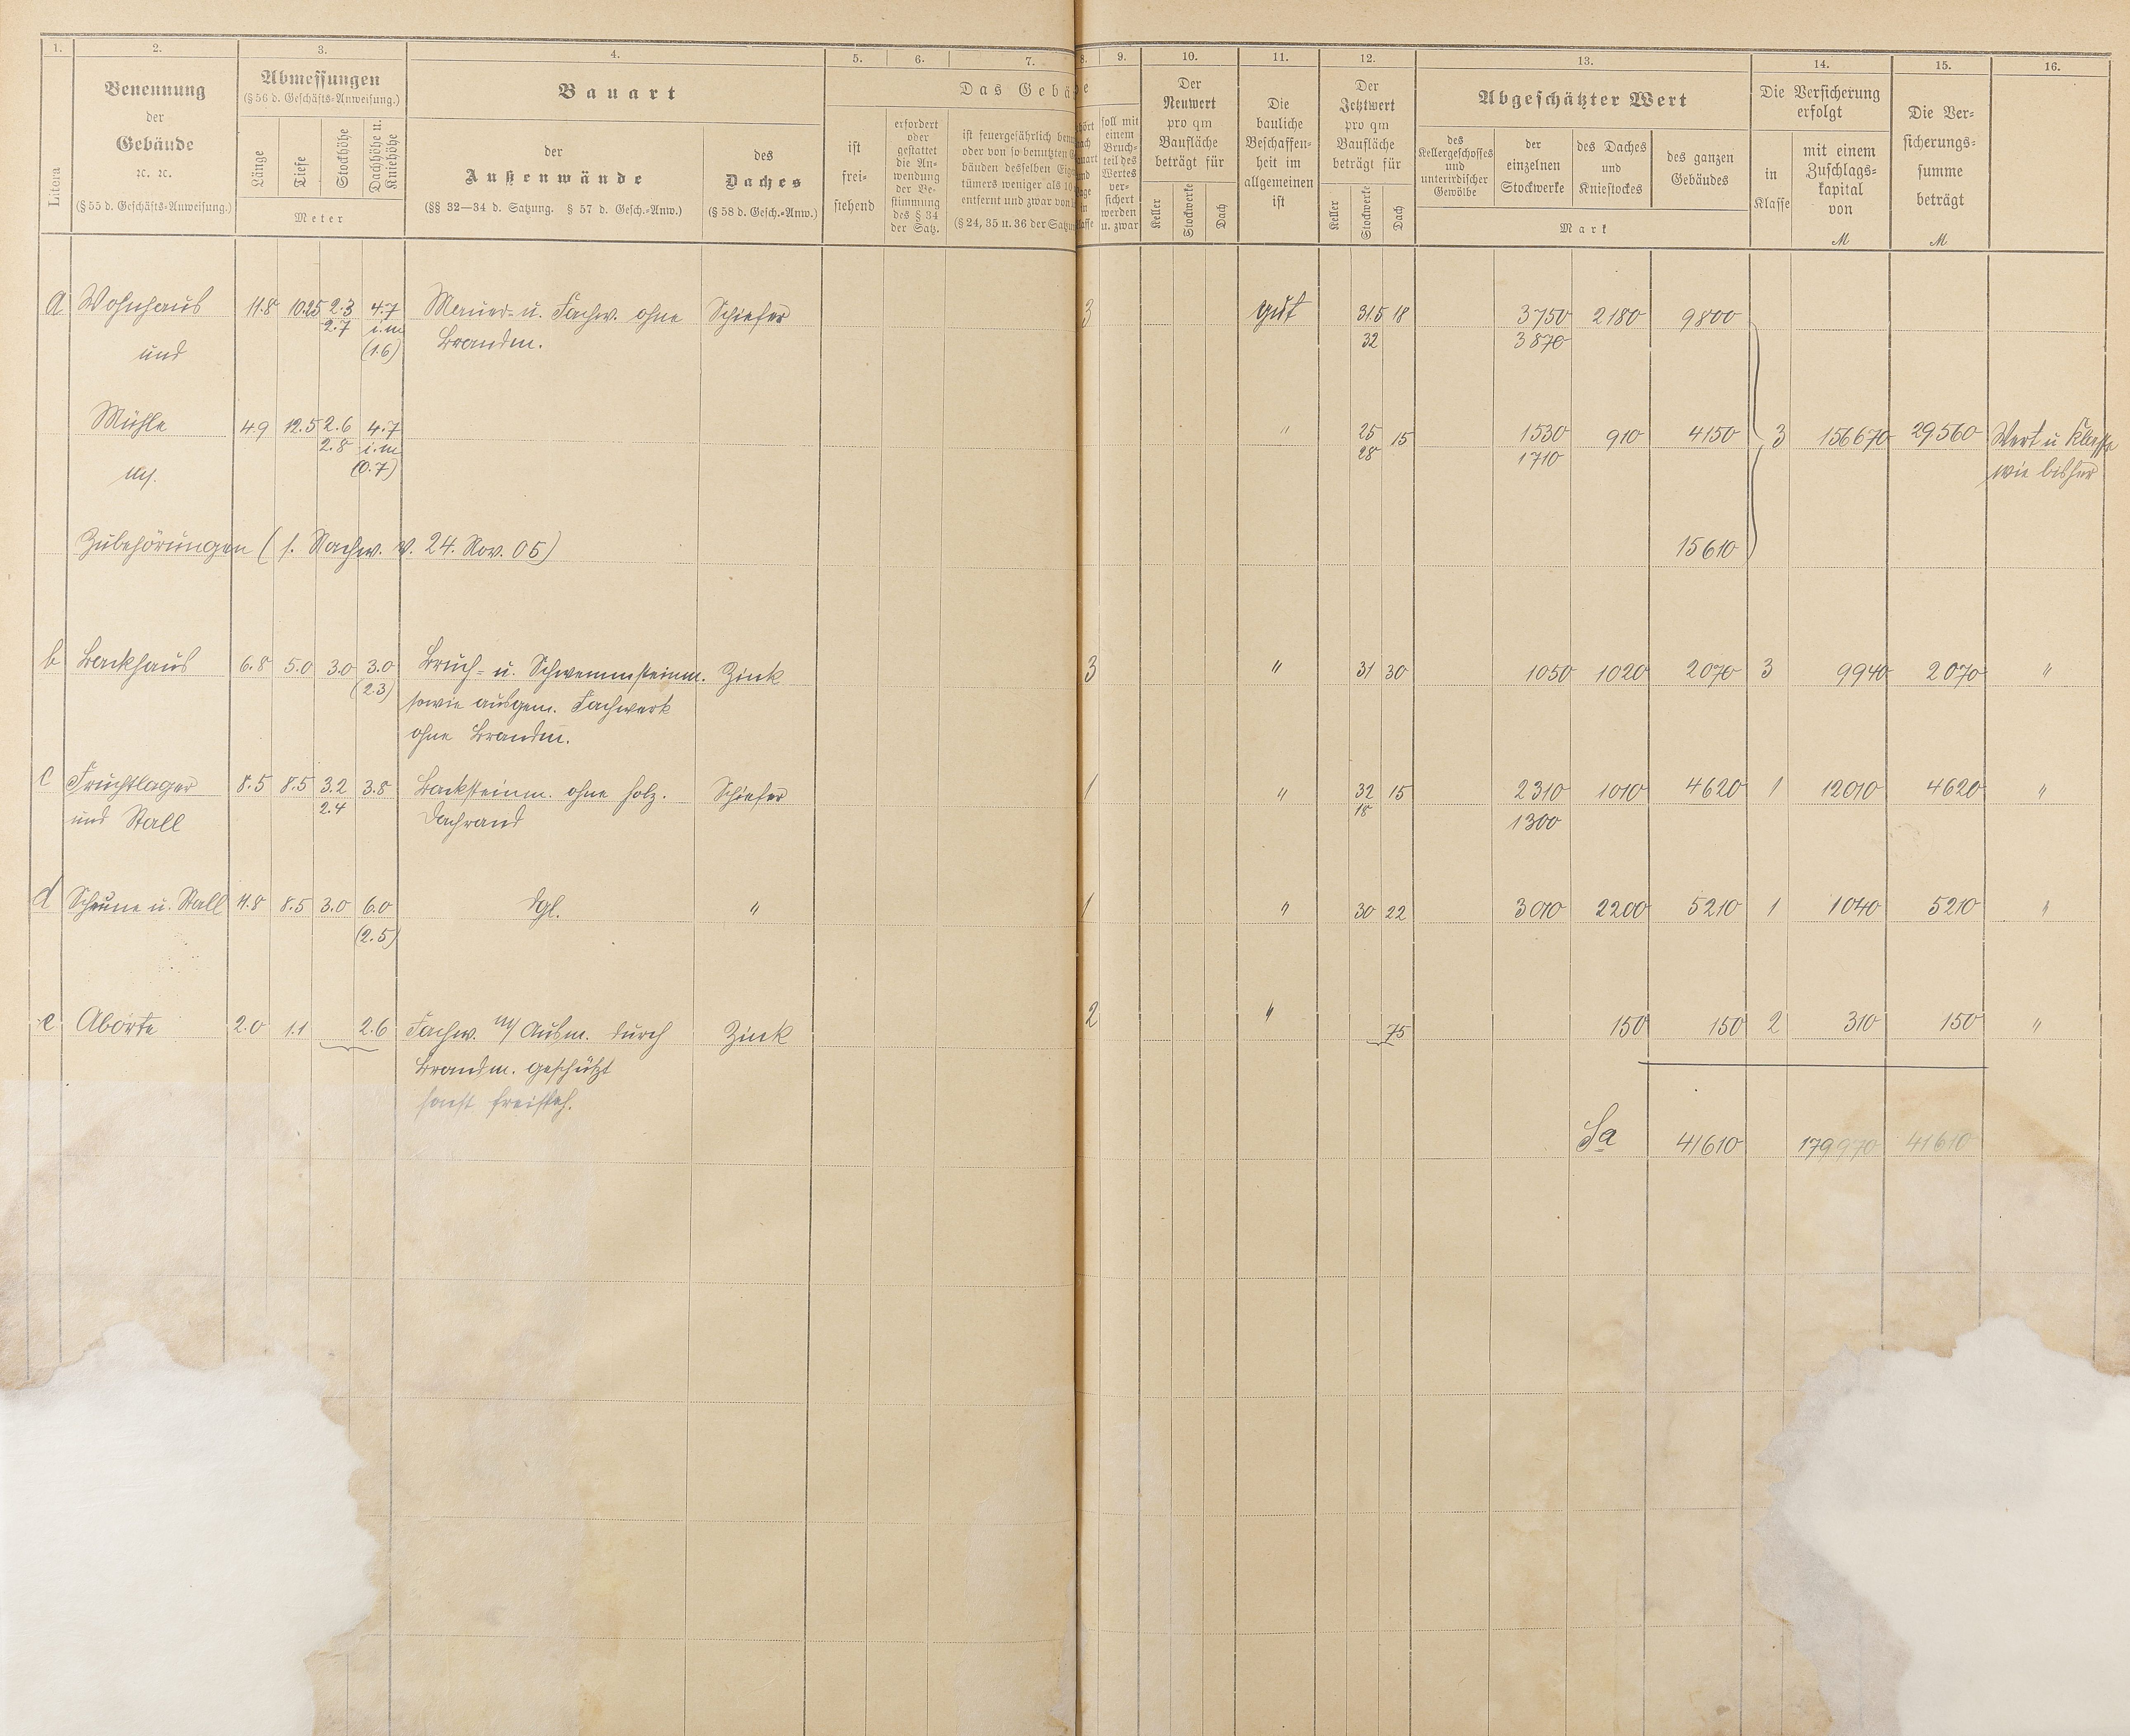 1. 2. 3. 4. 5. 6. 7. 8. 9. 10. 11. 12. 13. 14. 15. 16.
Litera
Benennung
der
Gebäude
ꝛc. ꝛc.
(§ 55 d. Geschäfts-Anweisung.)
Abmessungen
(§ 56 d. Geschäfts-Anweisung.)
Länge
Tiefe
Stockhöhe
Dachhöhe u.
Kniehöhe
Meter
Bauart
der
Außenwände
(§§ 32—34 d. Satzung. § 57 d. Gesch.-Anw.)
des
Daches
(§ 58 d. Gesch.-Anw.)
Das Gebä
ist
frei-
stehend
erfordert
oder
gestattet
die An-
wendung
der Be-
stimmung
des § 34
der Satz.
ist feuergefährlich
oder von so benutzten
bäuden desselben
tümers weniger als
entfernt und zwar von
(§ 24, 35 u. 36 der
soll mit
einem
Bruch-
teil des
Wertes
ver-
sichert
werden
u. zwar
Der
Neuwert
pro qm
Baufläche
beträgt für
Keller
Stockwerke
Dach
Die
bauliche
Beschaffen-
heit im
allgemeinen
ist
Der
Jetztwert
pro qm
Baufläche
beträgt für
Keller
Stockwerke
Dach
Abgeschätzter Wert
des
Kellergeschosses
und
unterirdischer
Gewölbe
der
einzelnen
Stockwerke
des Daches
und
Kniestockes
des ganzen
Gebäudes
Mark
Die Versicherung
erfolgt
in
Klasse
mit einem
Zuschlags-
kapital
von
M
Die Ver-
sicherungs-
summe
beträgt
M
a Wohnhaus 11.8 10.25 2.3 4.7 Mauer- u. Fachw. ohne Schiefer 3 gut 31.5 18 3750 2180 9800
2.7 i.m Brandm. 32 3870
und (1.6)
Mühle 4.9 12.5 2.6 4.7 " 25 15 1530 910 4150 3 156670 29560 Wert u Klasse
2.8 i.m 28 1710
(0.7) wie bisher
Zubehörungen (s. Nachw. v. 24. Nov. 05) 15610
b Backhaus 6.8 5.0 3.0 3.0 Bruch- u. Schwemmsteinm. Zink 3 " 31 30 1050 1020 2070 3 9940 2070 "
(2.3) sowie ausgem. Fachwerk
ohne Brandm.
c Fruchtlager 8.5 8.5 3.2 3.8 Backsteinm. ohne holz. Schiefer 1 " 32 15 2310 1010 4620 1 12010 4620 "
und Stall 2.4 Dachrand 18 1300
d Scheune u. Stall 11.8 8.5 3.0 6.0 dgl. " 1 " 30 22 3010 2200 5210 1 1040 5210 "
(2.5)
e Aborte 2.0 1.1 2.6 Fachw. m/ Ausm. durch Zink 2 " 75 150 150 2 310 150 "
Brandm. geschützt
sonst freisteh.
Sa 41610 179970 41610